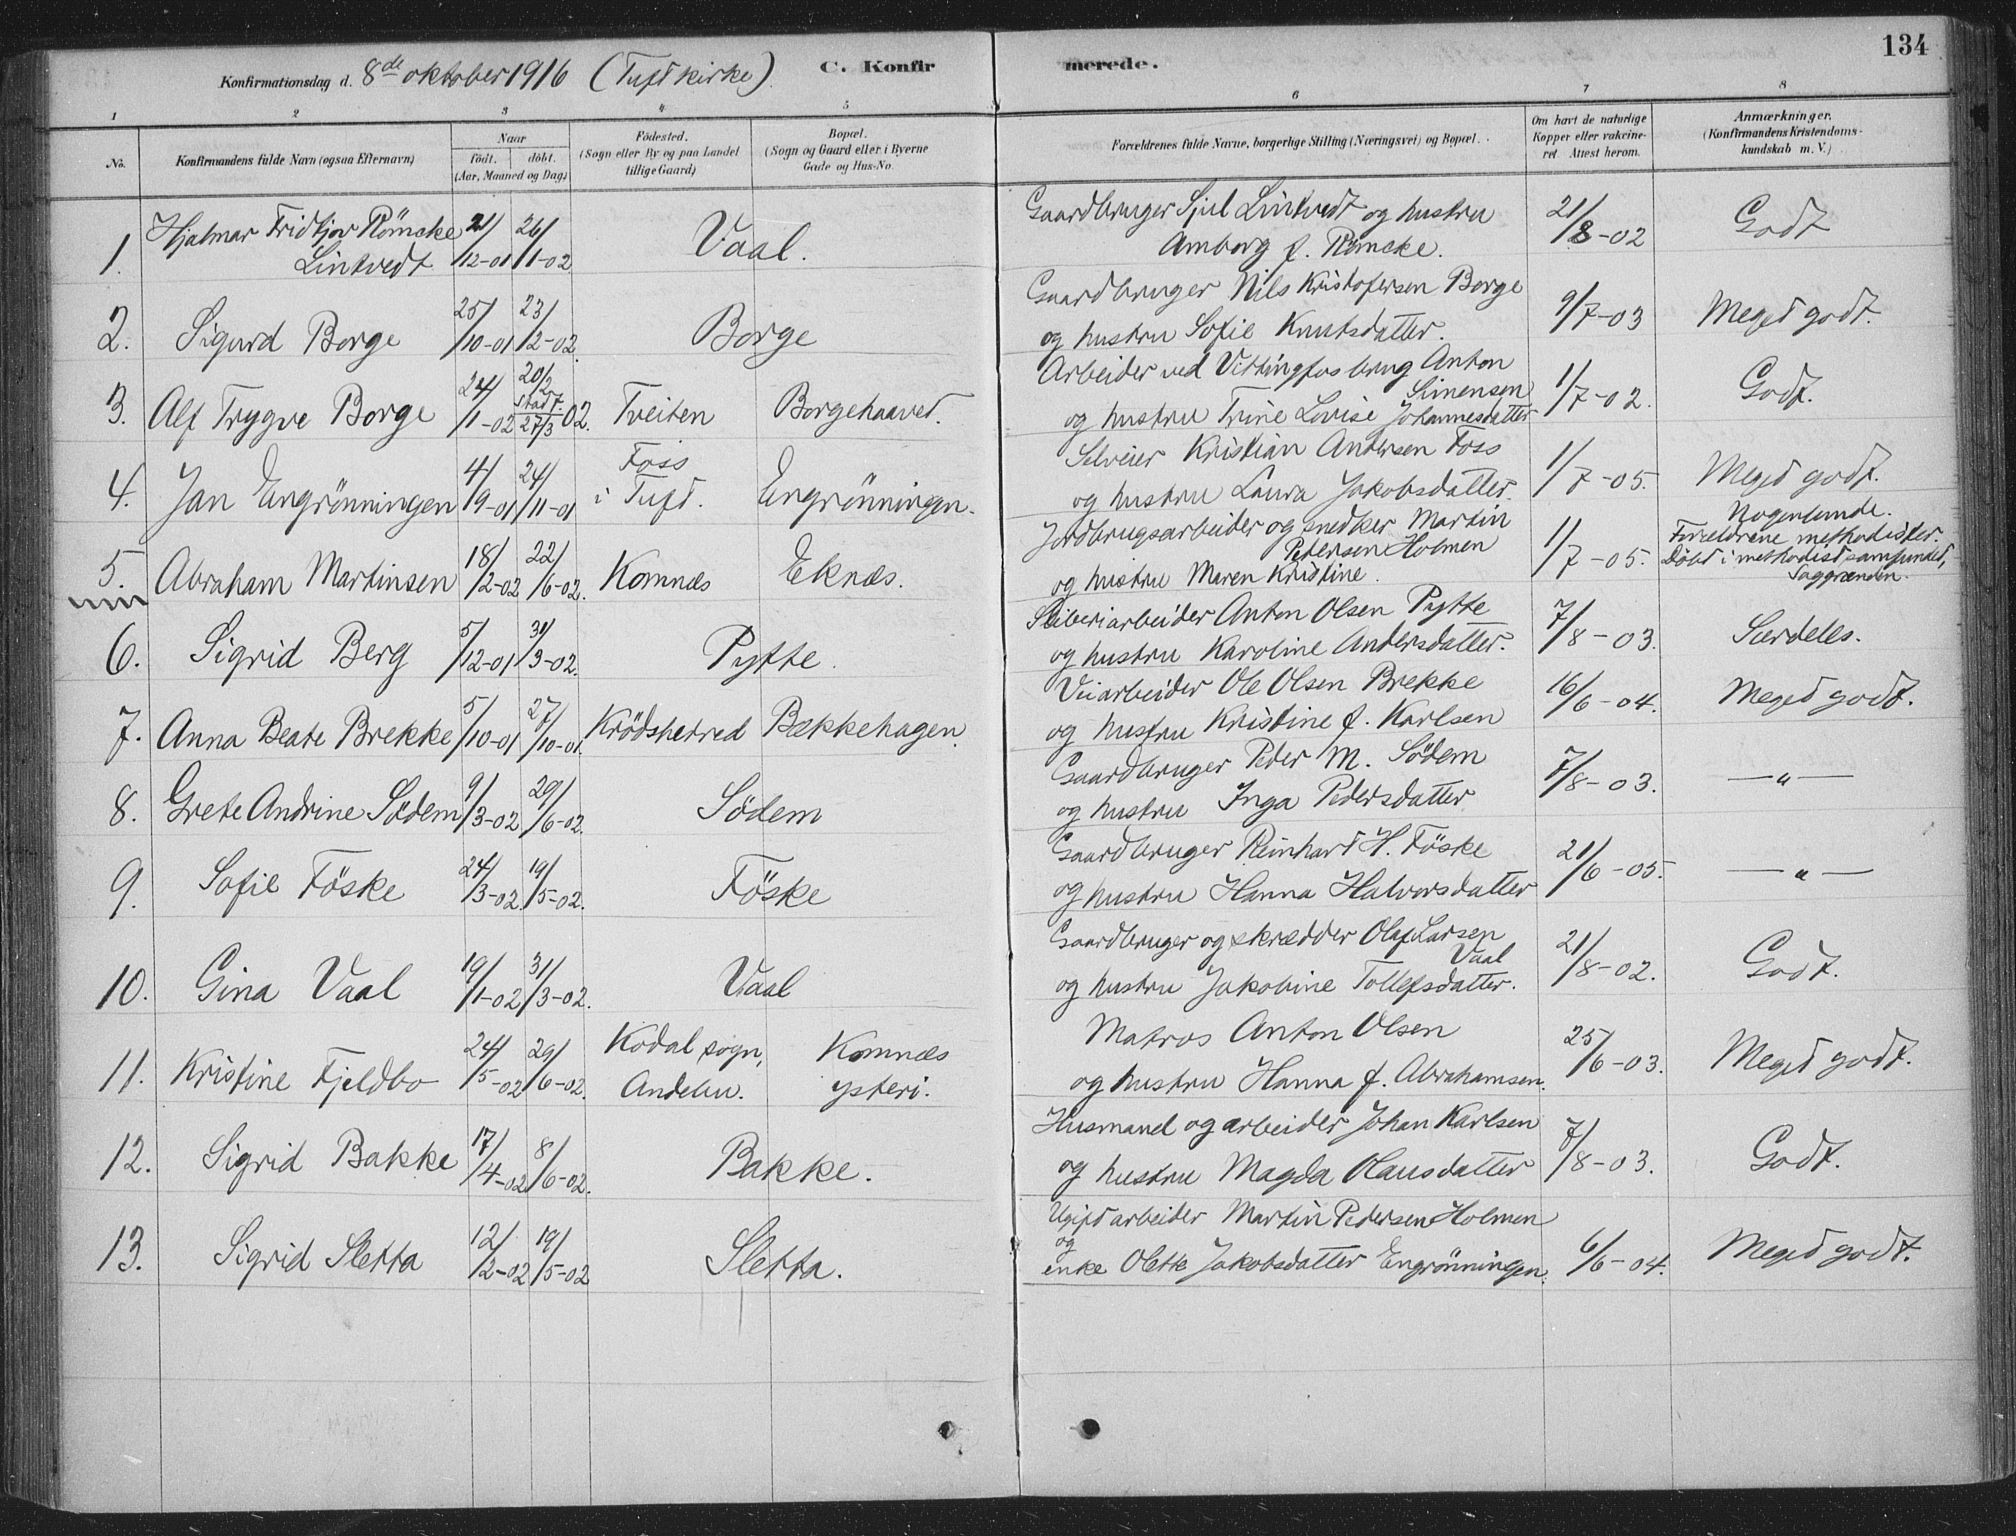 134
Konfirmationsdag d. 8de oktober 1916 (Tuft kirke). C. Konfirmerede.
1 2 3 4 5 6 7 8
No. Konfirmandens fulde Navn (ogsaa Efternavn) Naar födt. döbt. (Aar, Maaned og Dag) Födested. (Sogn eller By og paa Landet tillige Gaard) Bopæl. (Sogn og Gaard eller i Byerne Gade og Hus-No. Forældrenes fulde Navne, borgerlige Stilling (Næringsvei) og Bopæl. Om havt de naturlige Kopper eller vakcineret Attest herom. Anmærkninger. (Konfirmandens Kristendomskundskab m. V.)
1. Hjalmar Fridtjov Römcke Lintvedt 21/12-01 26/1-02 Vaal. Gaardbruger Sjul Lintvedt og hustru Amborg f. Römcke. 21/8-02 Godt
2. Sigurd Borge 25/10-01 23/2-02. Borge Gaardbruger Nils Kristofersen Borge og hustru Sofie Knutsdatter. 9/7-03 Meget godt.
3. Alf Trygve Borge 24/1-02 20/2 stadf. 27/3 02. Tveiten Borgehaavet. Arbeider ved Vittingfos brug Anton Simensen og hustru Trine Lovise Johannesdatter 1/7-02. Godt.
4. Jan Engrönningen 4/19-01 24/11-01 Foss i Tuft. Engrönningen. Selveier Kristian Andersen Foss og hustru Laura Jakobsdatter. 1/7-05. Meget godt.
5. Abraham Martinsen 18/2-02 22/6-02. Komnæs Eknæs. Jordbrugsarbeider og snedker Martin Pedersen Holmen og hustru Maren Kristine. 1/7-05. Nogenlunde. Forældrene methodister. Döbt i methodistsamfundet,
6. Sigrid Berg 5/12-01 31/3-02. Pytte. Sliberiarbeider Anton Olsen Pytte og hustru Karoline Andersdatter. 7/8-03. Særdeles.
7. Anna Beate Brekke 5/10-01 27/10-01. Krödsherred Bækkehagen. Veiarbeider Ole Olsen Brekke og hustru Kristine f. Karlsen 16/6-04. Meget godt.
8. Grete Andrine Södem 9/3-02 29/6-02. Södem Gaardbruger Peder M. Södem og hustru Inga Pedersdatter 7/8-03. —"—
9. Sofie Föske 24/3-02. 19/5-02. Föske Gaardbruger Reinhart H. Föske og hustru Hanna Halvorsdatter 21/6-05. —"—
10. Gina Vaal 19/1-02 31/3-02. Vaal Gaardbruger og skrædder Olaf Larsen Vaal og hustru Jakobine Tollefsdatter. 21/8-02. Godt.
11. Kristine Fjeldbo 24/5-02 29/6-02. Kodal sogn, Andebu. Komnæs ysteri. Matros Anton Olsen og hustru Hanna f. Abrahamsen. 25/6-03. Meget godt.
12. Sigrid Bakke 17/4-02 8/6-02. Bakke. Husmand og arbeider Johan Karlsen og hustru Magda Olausdatter 7/8-03. Godt.
13. Sigrid Sletta 12/2-02 19/5-02 Sletta. Ugift arbeider Martin Pedersen Holmen og enke Olette Jakobsdatter Engrönningen. 6/6-04. Meget godt.